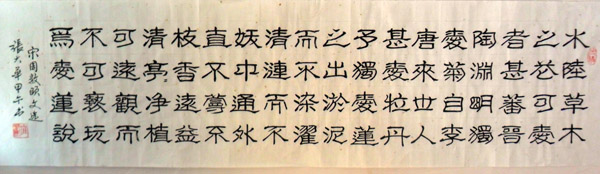 水陸草木
之花可愛
者甚蕃晉
陶淵明獨
愛菊自李
唐來世人
甚愛牡丹
予獨愛蓮
之出淤泥
而不染濯
清漣而不
妖中通外
直不蔓不
枝香遠益
清亭淨植
可遠觀而
不可褻玩
為愛蓮說
宋周敦頤文選
張大華甲午書